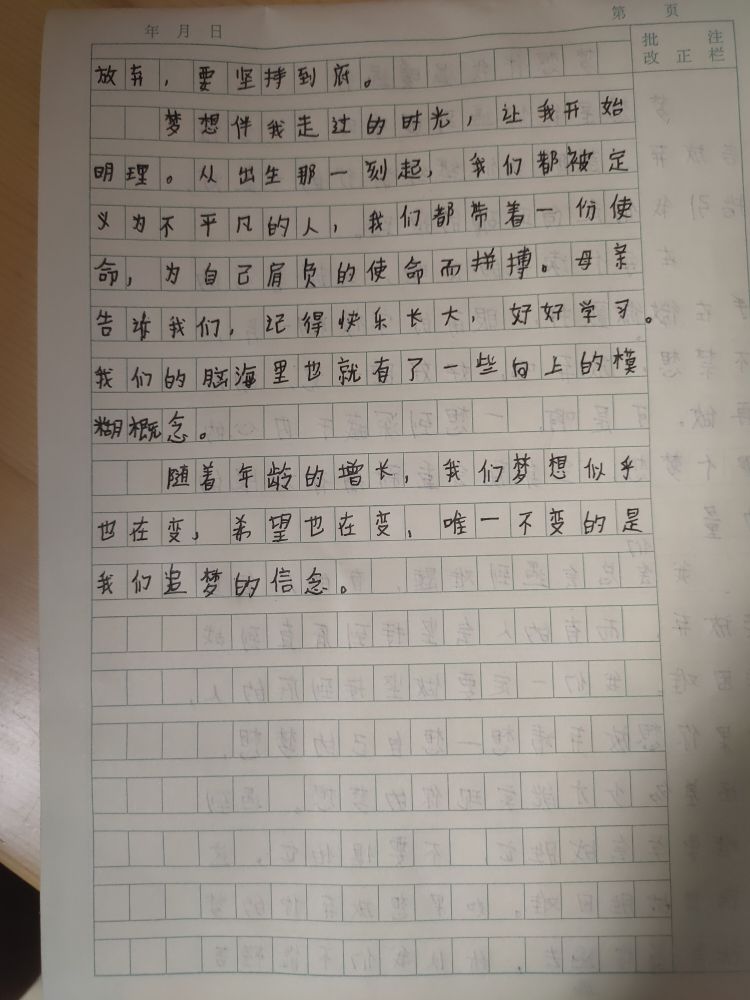 年 月 日
第 页
批 注
改 正 栏
放弃，要坚持到底。
梦想伴我走过的时光，让我开始
明理。从出生那一刻起，我们都被定
义为不平凡的人，我们都带着一份使
命，为自己肩负的使命而拼搏。母亲
告诉我们，记得快乐长大，好好学习。
我们的脑海里也就有了一些向上的模
糊概念。
随着年龄的增长，我们梦想似乎
也在变，希望也在变，唯一不变的是
我们追梦的信念。